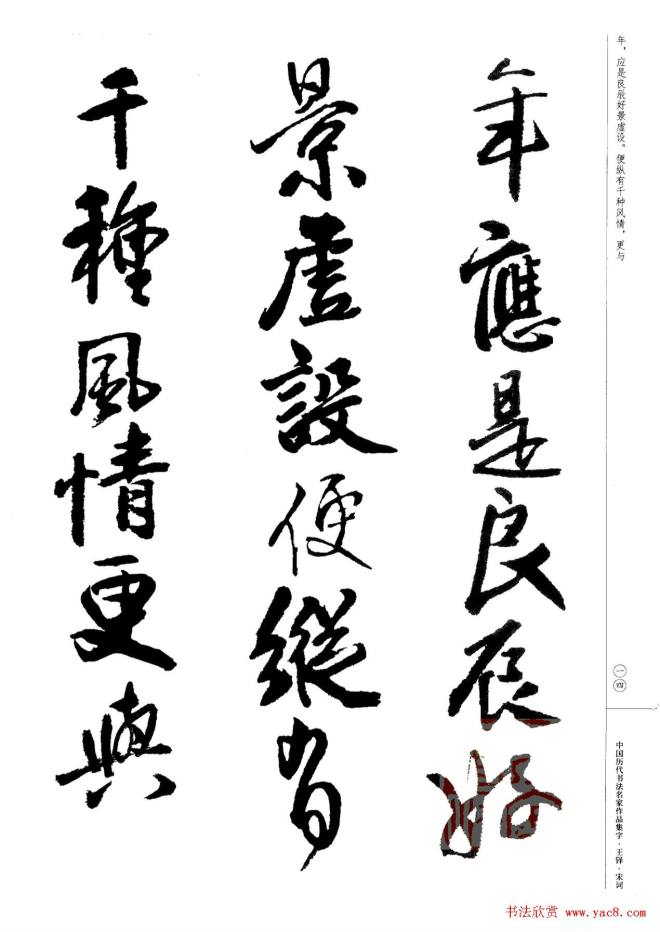 年，应是良辰好景虚设。便纵有千种风情，更与
年應是良辰好
景虛設便縱有
千種風情更與
一四
中国历代书法名家作品集字·王铎·宋词
书法欣赏 www.yac8.com